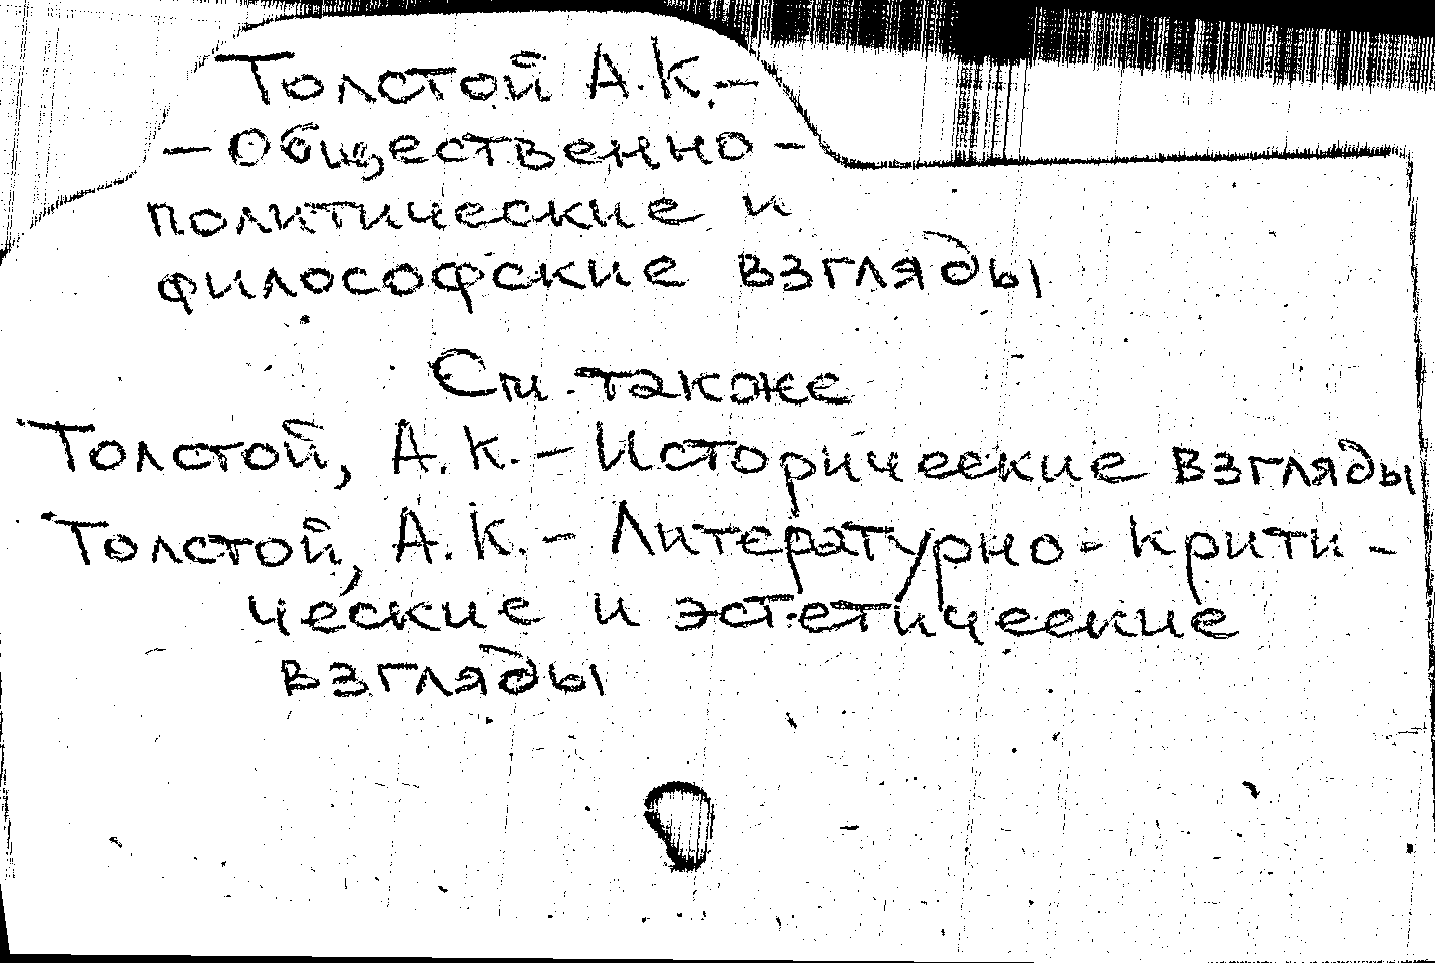 Толстой А.К.–
– Общественно-
политические и
философские взгляды
См. также
Толстой, А.К. – Исторические взгляды
Толстой, А.К. – Литературно-крити-
ческие и эстетические
взгляды